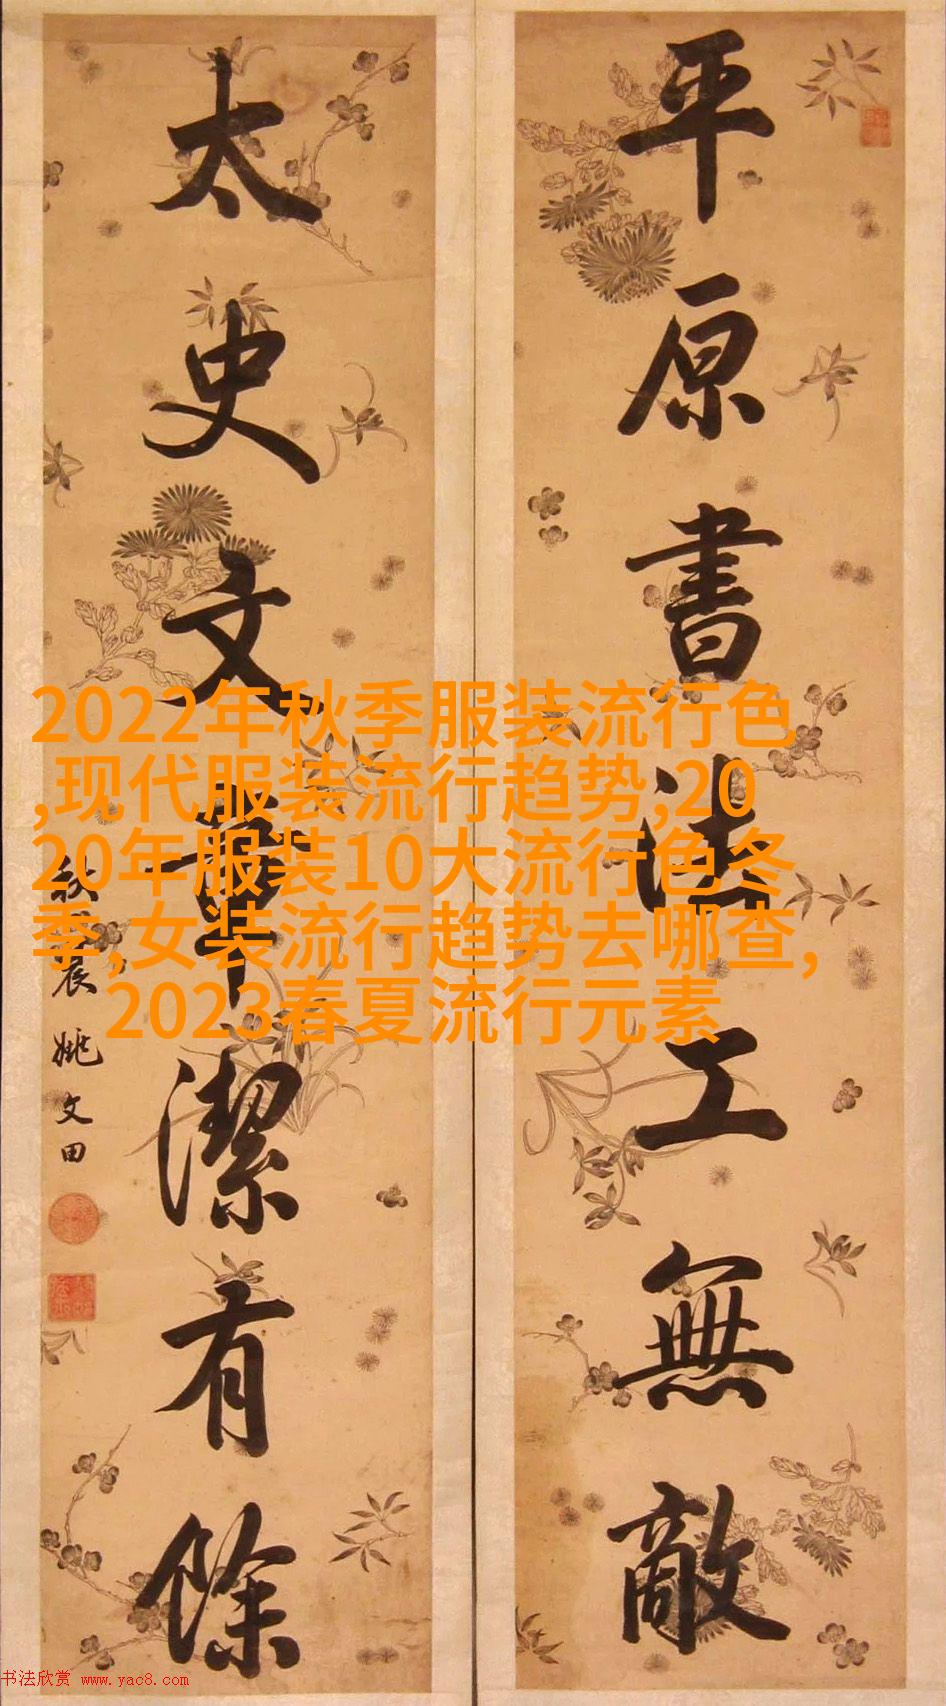 平原書法工無敵
太史文章潔有餘
秋農姚文田
2022年秋季服装流行色
,现代服装流行趋势,20
20年服装10大流行色冬
季,女装流行趋势去哪查,
2023春夏流行元素
书法欣赏 www.yac8.com